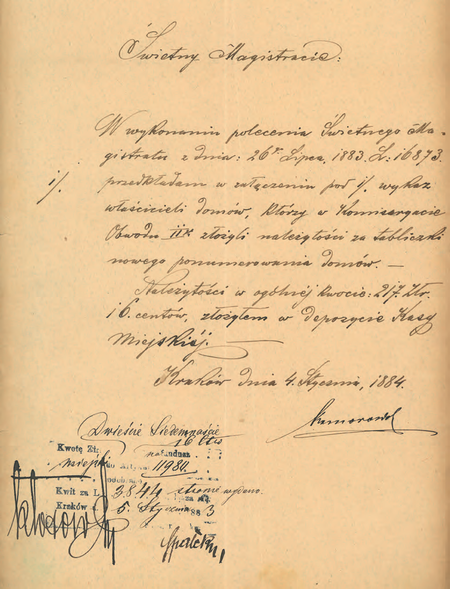 Świetny Magistracie:
W wykonaniu polecenia Świetnego Ma-
gistratu z dnia: 26go Lipca, 1883. L: 16873.
1/. przedkładam w załączeniu pod 1/. wykaz
właścicieli domów, którzy w Komisaryacie
Obwodu IIIK złożyli należytości za tabliczki
nowego ponumerowania domów. —
Należytości w ogólnej kwocie: 217. Złr.
16. centów, złożyłem w depozycie Kasy
Miejskiéj. —
Kraków dnia 4. Stycznia, 1884.
Komorowski
Dwieście Siedemnaście
16 ctw
Kwotę Zł.
11984.
Kwit za L. 3844 stronie wydano.
Kraków 5 Stycznia 88 3